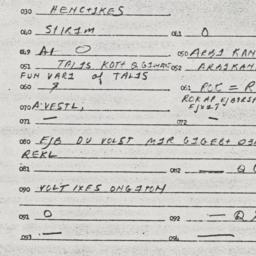 030 HENCTIKES
040 STIRIM 041 O
049 AI O 050 ARBI KAN
051 TALIS KOTT & GINAS 052 ARAIKAN
FUN VARI of TALIS
060 061 POC = R
ROKAP EJBRSI
070 AVESTL,
071 — 072 —
080 EJB DU VOLST MIR GIGEBT
REKL
081 082 — Q
090 VOLT IXES ONGITOM
091 O 092 — Q
093 — 094 —